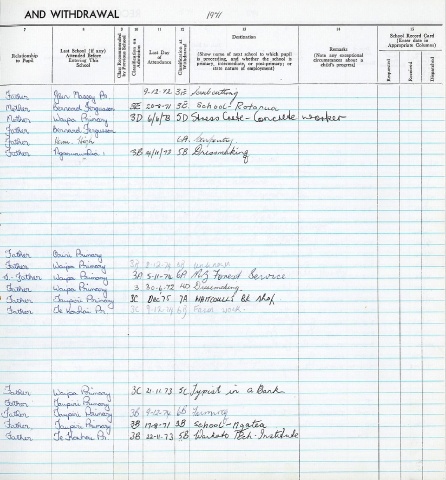 AND WITHDRAWAL 1971
7 8 9 10 11 12 13 14 15
Relationship to Pupil
Last School (if any) Attended Before Entering This School
Class Recommended by Previous School
Classification at
Last Day of Attendance
Classification at Withdrawal
Destination
(Show name of next school to which pupil is proceeding, and whether the school is primary, intermediate, or post-primary, or state nature of employment)
Remarks
(Note any exceptional circumstances about a child's progress)
School Record Card
(Enter date in Appropriate Columns)
Requested
Received
Despatched
Father Glen Massey Pr. 9-12-72
Mother Bernard Fergusson 20-8-71 3E School - Rotorua
Mother Waipa Primary 3D 5D Stress Crete - Concrete worker
Father Bernard Fergusson
Father
Father Ngaruawahia 3B 5B Dressmaking
Father Primary
Father Waipa Primary
Father Waipa Primary 3A 5-11-74 6A N.Z Forest Service
Father Waipa Primary 3 30-6-72 4D Dressmaking
Father Taupiri Primary 3C Dec 75 7A Whitcoulls Bk shop.
Father Te Kowhai Pr. 3C 9-12-74 Farm work.
Father Waipa Primary 3C 21-11-73 5C Typist in a Bank
Father Taupiri Primary
Father Taupiri Primary 3B 9-12-74 6B Farming
Father, Taupiri Primary 3B 17-8-71 3B School - Ngatea
Father Te Kowhai Pr. 3B 22-11-73 5B Waikato Tech. Institute